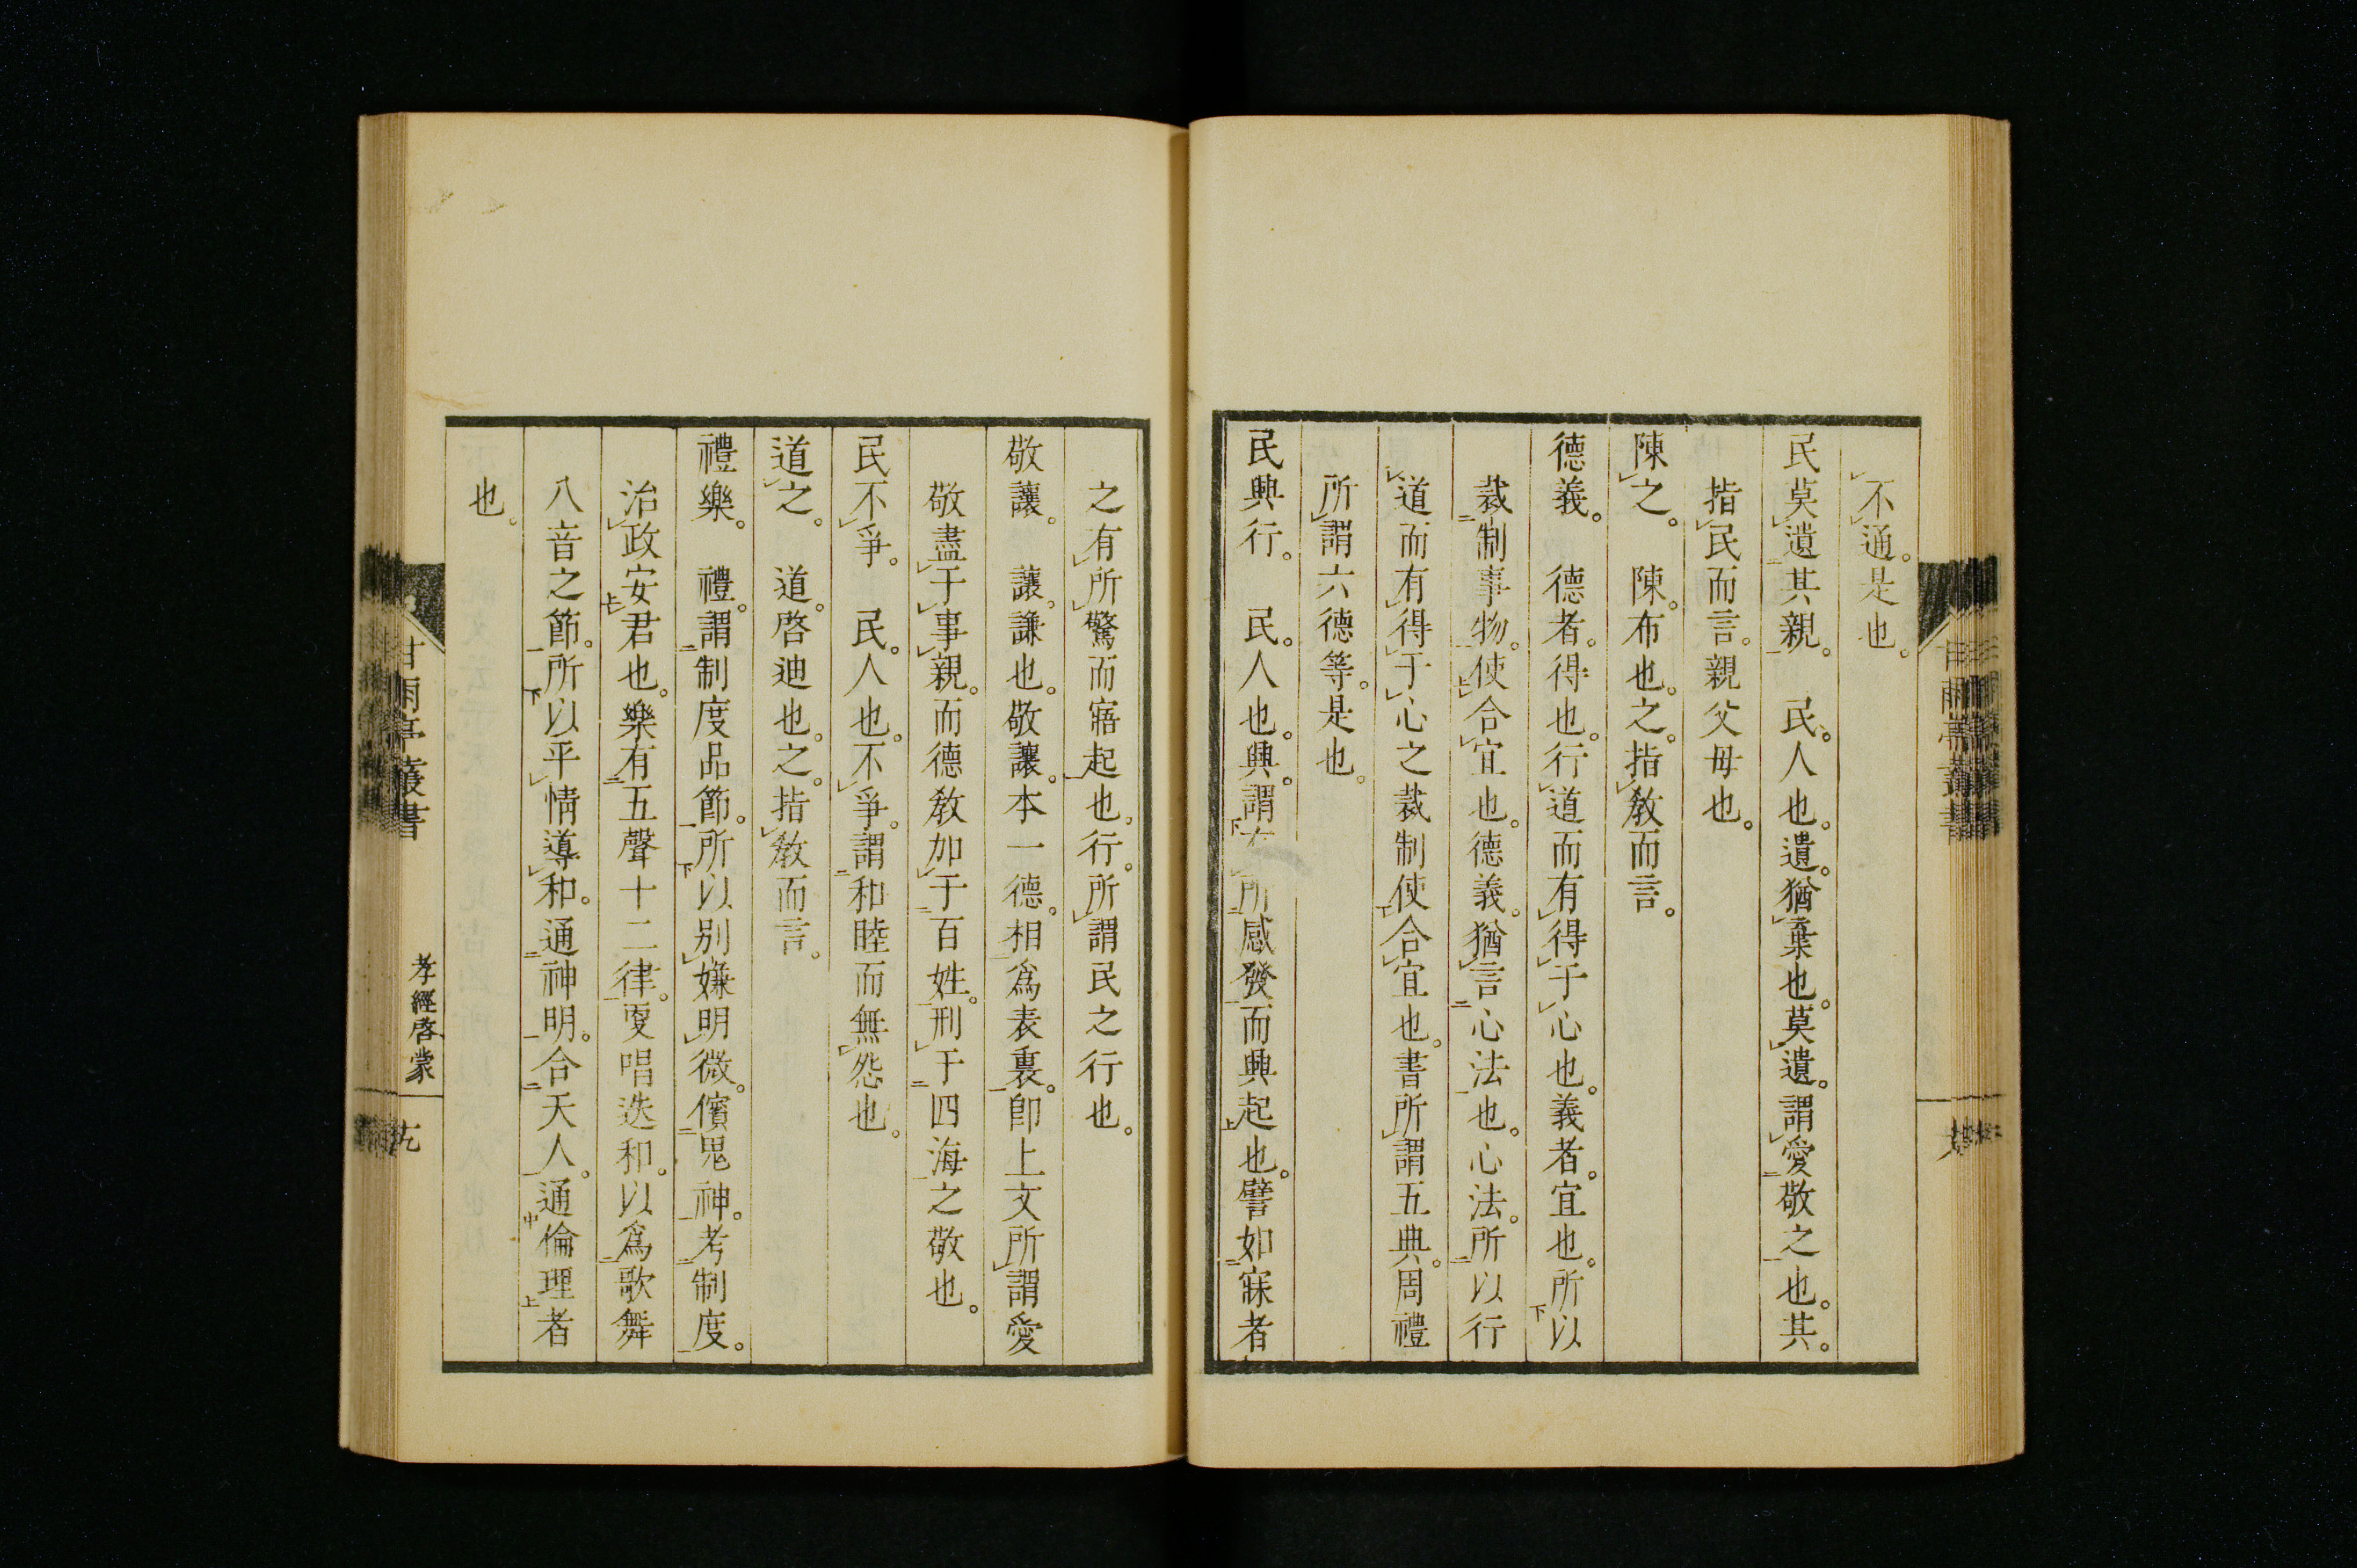 不通。是也。
民莫遺其親。　民。人也。遺。猶棄也。莫遺。謂愛敬之也。其。
指民而言。親父母也。
陳之。　陳。布也。之。指教而言。
德義。　德者。得也。行道而有得于心也。義者。宜也。所以
裁制事物。使合宜也。德義。猶言心法也。心法。所以行
道而有得于心之裁制使合宜也。書所謂五典。周禮
所謂六德等。是也。
民興行。　民。人也。興。謂有所感發而興起也。譬如寐者
之有所驚而寤起也。行。所謂民之行也。
敬讓。　讓。謙也。敬讓。本一德。相爲表裏。卽上文所謂愛
敬盡于事親。而德教加于百姓。刑于四海之敬也。
民不爭。　民。人也。不爭。謂和睦而無怨也。
道之。　道。啓迪也。之。指教而言。
禮樂。　禮。謂制度品節。所以別嫌明微。儐鬼神。考制度。
治政安君也。樂有五聲十二律。更唱迭和。以爲歌舞
八音之節。所以平情導和。通神明。合天人。通倫理者
也。
甘雨亭叢書
孝經啓蒙